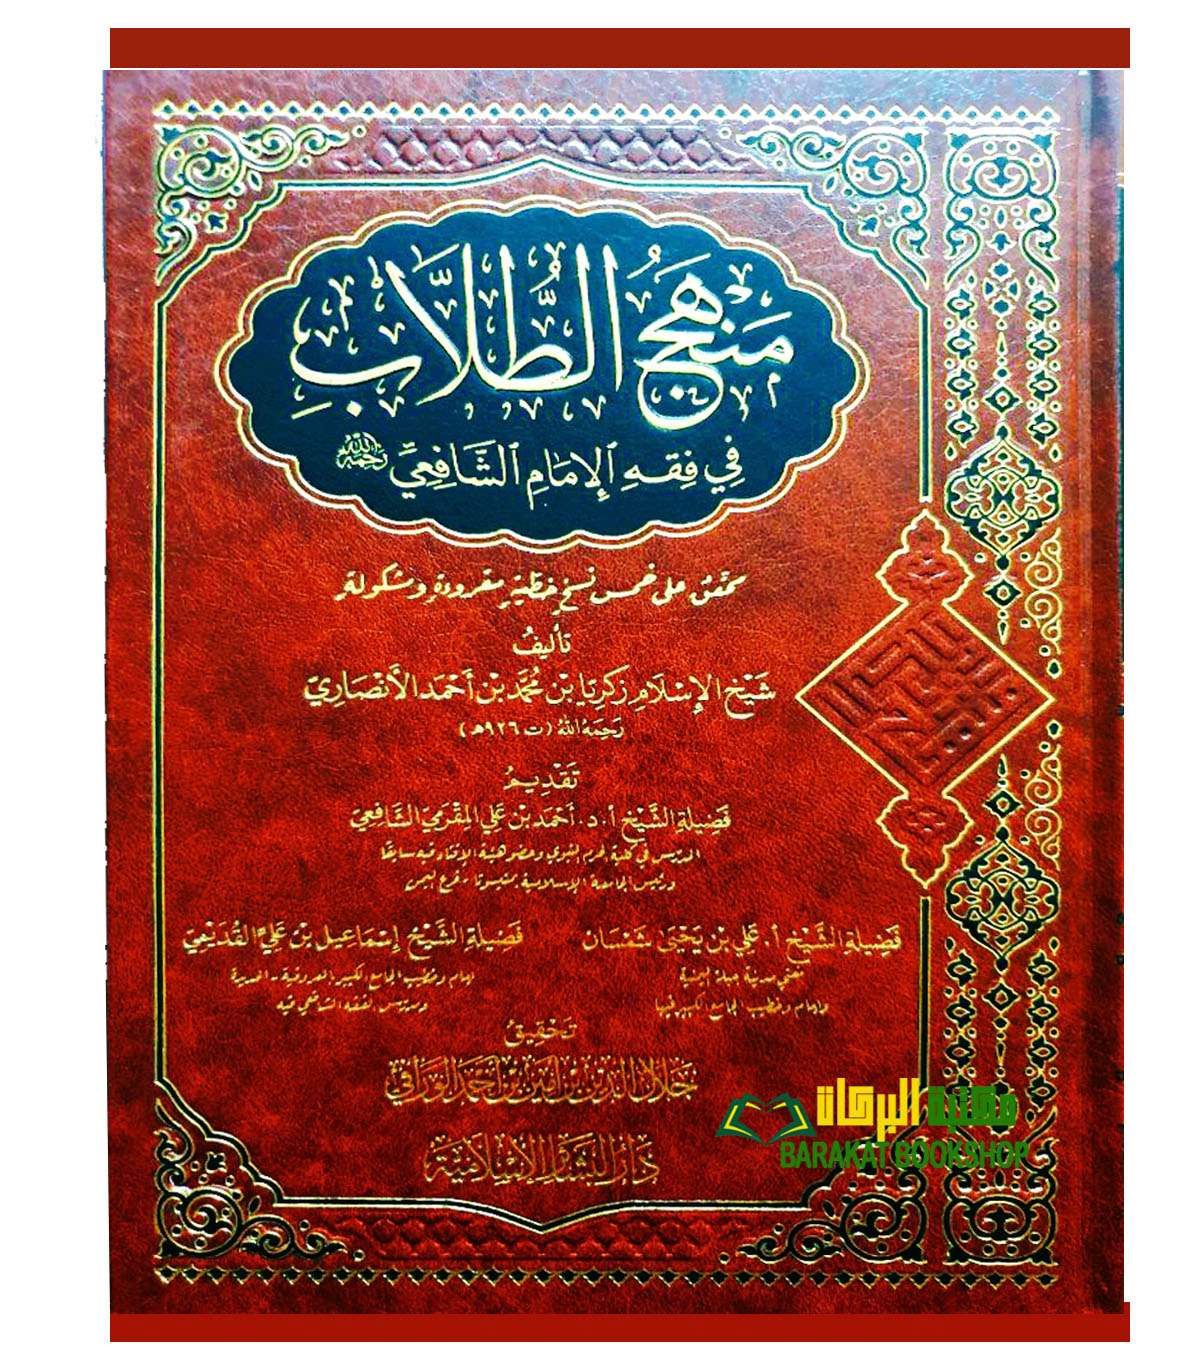 مَنْهَجُ الطُّلَّابِ
فِي فِقْهِ الإِمَامِ الشَّافِعِيِّ رَحِمَهُ اللَّهُ
محقق على خمس نسخ خطية مقروءة ومشكولة
تَأْلِيفُ
شَيْخِ الإِسْلَامِ زَكَرِيَّا بْنِ مُحَمَّد بْنِ أَحْمَد الأَنْصَارِيّ
رَحِمَهُ اللهُ (ت ٩٢٦هـ)
تَقْدِيمُ
فَضِيلَةِ الشَّيْخِ أ. د. أَحْمَد بْن عَلِي المَقْرَمِيّ الشَّافِعِيّ
المدرّس في كلية الحرم النبوي وعضو هيئة الإفتاء فيه سابقًا
ورئيس الجامعة الإسلامية بمنيسوتا - فرع اليمن
فَضِيلَةِ الشَّيْخِ أ. عَلِي بْن يَحْيَى شَمْسَان
مفتي مدينة جبلة اليمنية
وإمام وخطيب الجامع الكبير فيها
فَضِيلَةِ الشَّيْخِ إِسْمَاعِيل بْن عَلِيّ القُدَيْمِيّ
إمام وخطيب الجامع الكبير - الحديدة
ومدرّس الفقه الشافعي فيه
تَحْقِيقُ
جلال الدين بن أمين بن أحمد الورافي
دار البشائر الإسلامية
مكتبة البركات
BARAKAT BOOKSHOP